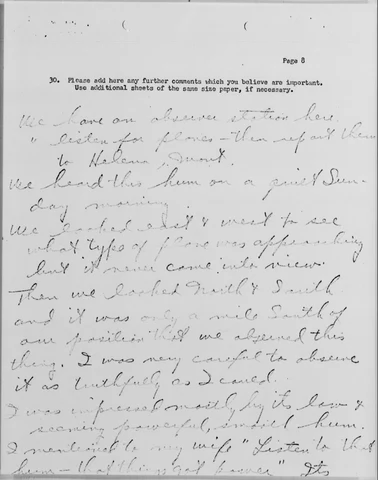 Page 8
30. Please add here any further comments which you believe are important.
Use additional sheets of the same size paper, if necessary.
We have an observer station here.
" listen for planes – then report them
to Helena, Mont.
We heard this hum on a quiet Sun-
day morning.
We looked east & west to see
what type of plane was approaching
but it never came into view.
Then we looked North & South
and it was only a mile South of
our position that we observed this
thing. I was very careful to observe
it as truthfully as I could.
I was impressed mostly by its low &
seeming powerful, smooth hum.
I mentioned to my wife "Listen to that
hum – that thing's got power" Its